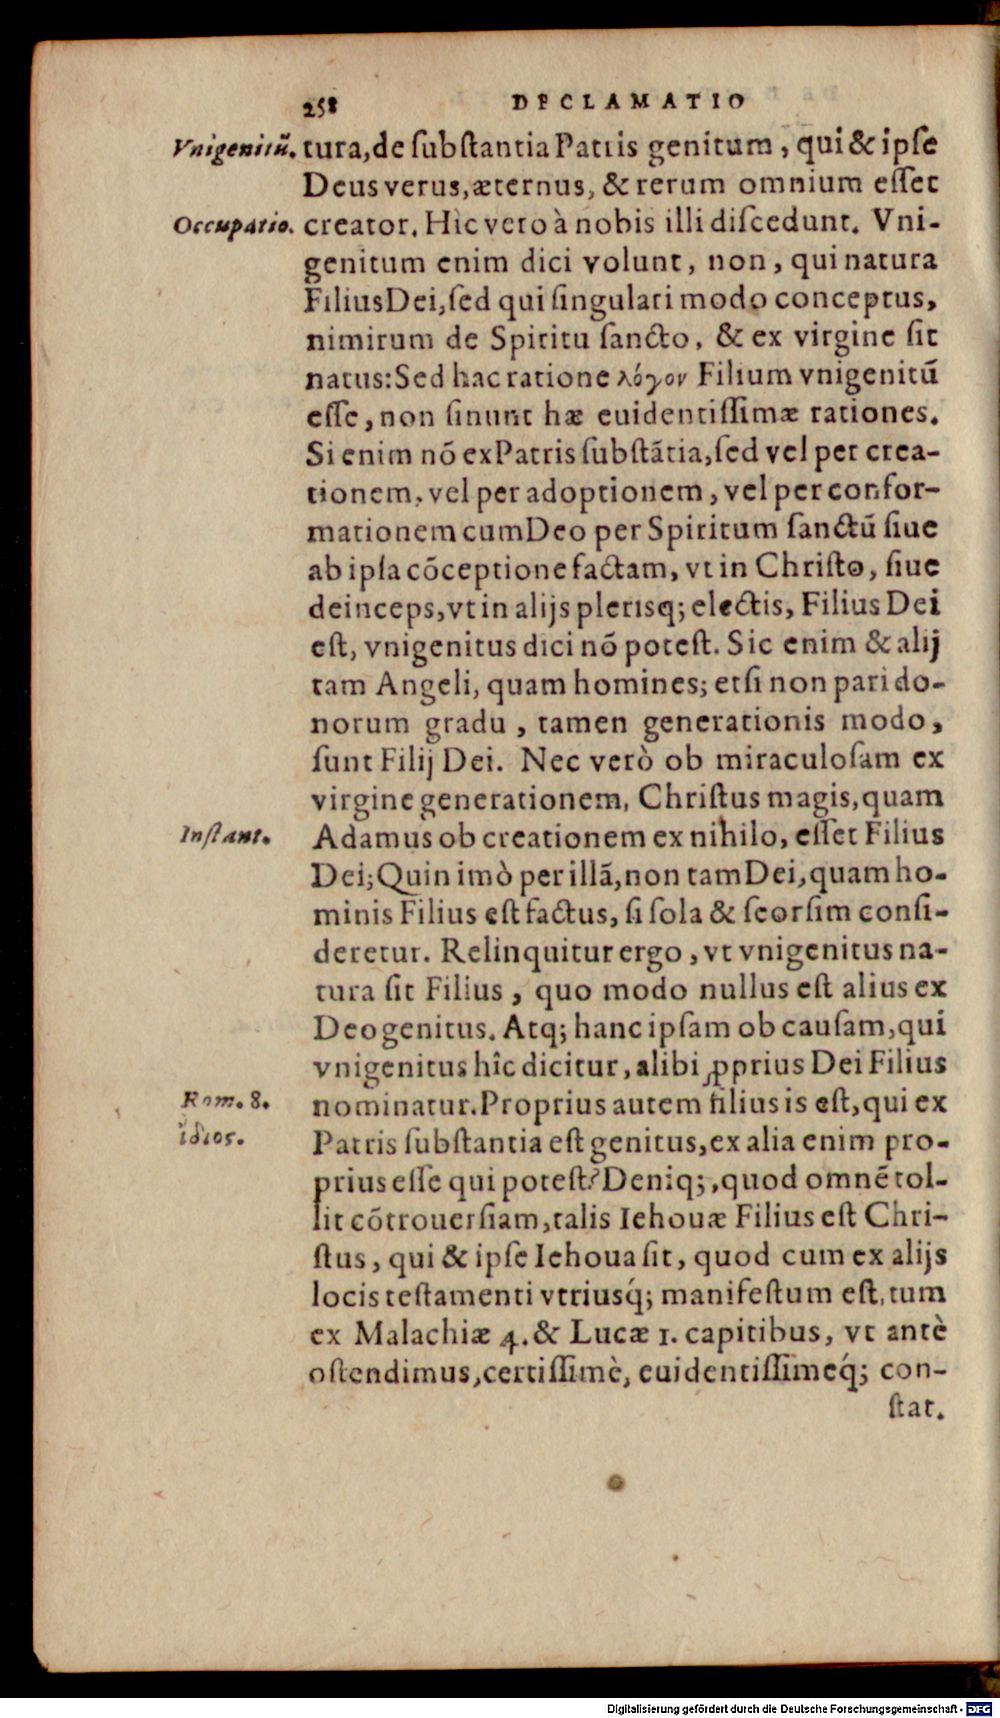 258 DECLAMATIO
Vnigenitũ. tura, de ſubſtantia Patris genitum, qui & ipſe
Deus verus, æternus, & rerum omnium eſſet
Occupatio. creator. Hîc vero à nobis illi diſcedunt. Vni-
genitum enim dici volunt, non, qui natura
Filius Dei, ſed qui ſingulari modo conceptus,
nimirum de Spiritu ſancto, & ex virgine ſit
natus: Sed hac ratione λόγον Filium vnigenitũ
eſſe, non ſinunt hæ euidentiſſimæ rationes.
Si enim nõ ex Patris ſubſtãtia, ſed vel per crea-
tionem, vel per adoptionem, vel per confor-
mationem cum Deo per Spiritum ſanctũ ſiue
ab ipſa cõceptione factam, vt in Chriſto, ſiue
deinceps, vt in alijs plerisq; electis, Filius Dei
eſt, vnigenitus dici nõ poteſt. Sic enim & alij
tam Angeli, quam homines; etſi non pari do-
norum gradu, tamen generationis modo,
ſunt Filij Dei. Nec verò ob miraculoſam ex
virgine generationem, Chriſtus magis, quam
Inſtant. Adamus ob creationem ex nihilo, eſſet Filius
Dei; Quin imò per illã, non tam Dei, quam ho-
minis Filius eſt factus, ſi ſola & ſeorſim conſi-
deretur. Relinquitur ergo, vt vnigenitus na-
tura ſit Filius, quo modo nullus eſt alius ex
Deo genitus. Atq; hanc ipſam ob cauſam, qui
vnigenitus hîc dicitur, alibi ꝓprius Dei Filius
Rom. 8. nominatur. Proprius autem filius is eſt, qui ex
ἴδιος. Patris ſubſtantia eſt genitus, ex alia enim pro-
prius eſſe qui poteſt? Deniq;, quod omnẽ tol-
lit cõtrouerſiam, talis Iehouæ Filius eſt Chri-
ſtus, qui & ipſe Iehoua ſit, quod cum ex alijs
locis teſtamenti vtriusq́; manifeſtum eſt, tum
ex Malachiæ 4. & Lucæ 1. capitibus, vt antè
oſtendimus, certiſſimè, euidentiſſimeq́; con-
ſtat.
Digitalisierung gefördert durch die Deutsche Forschungsgemeinschaft - DFG